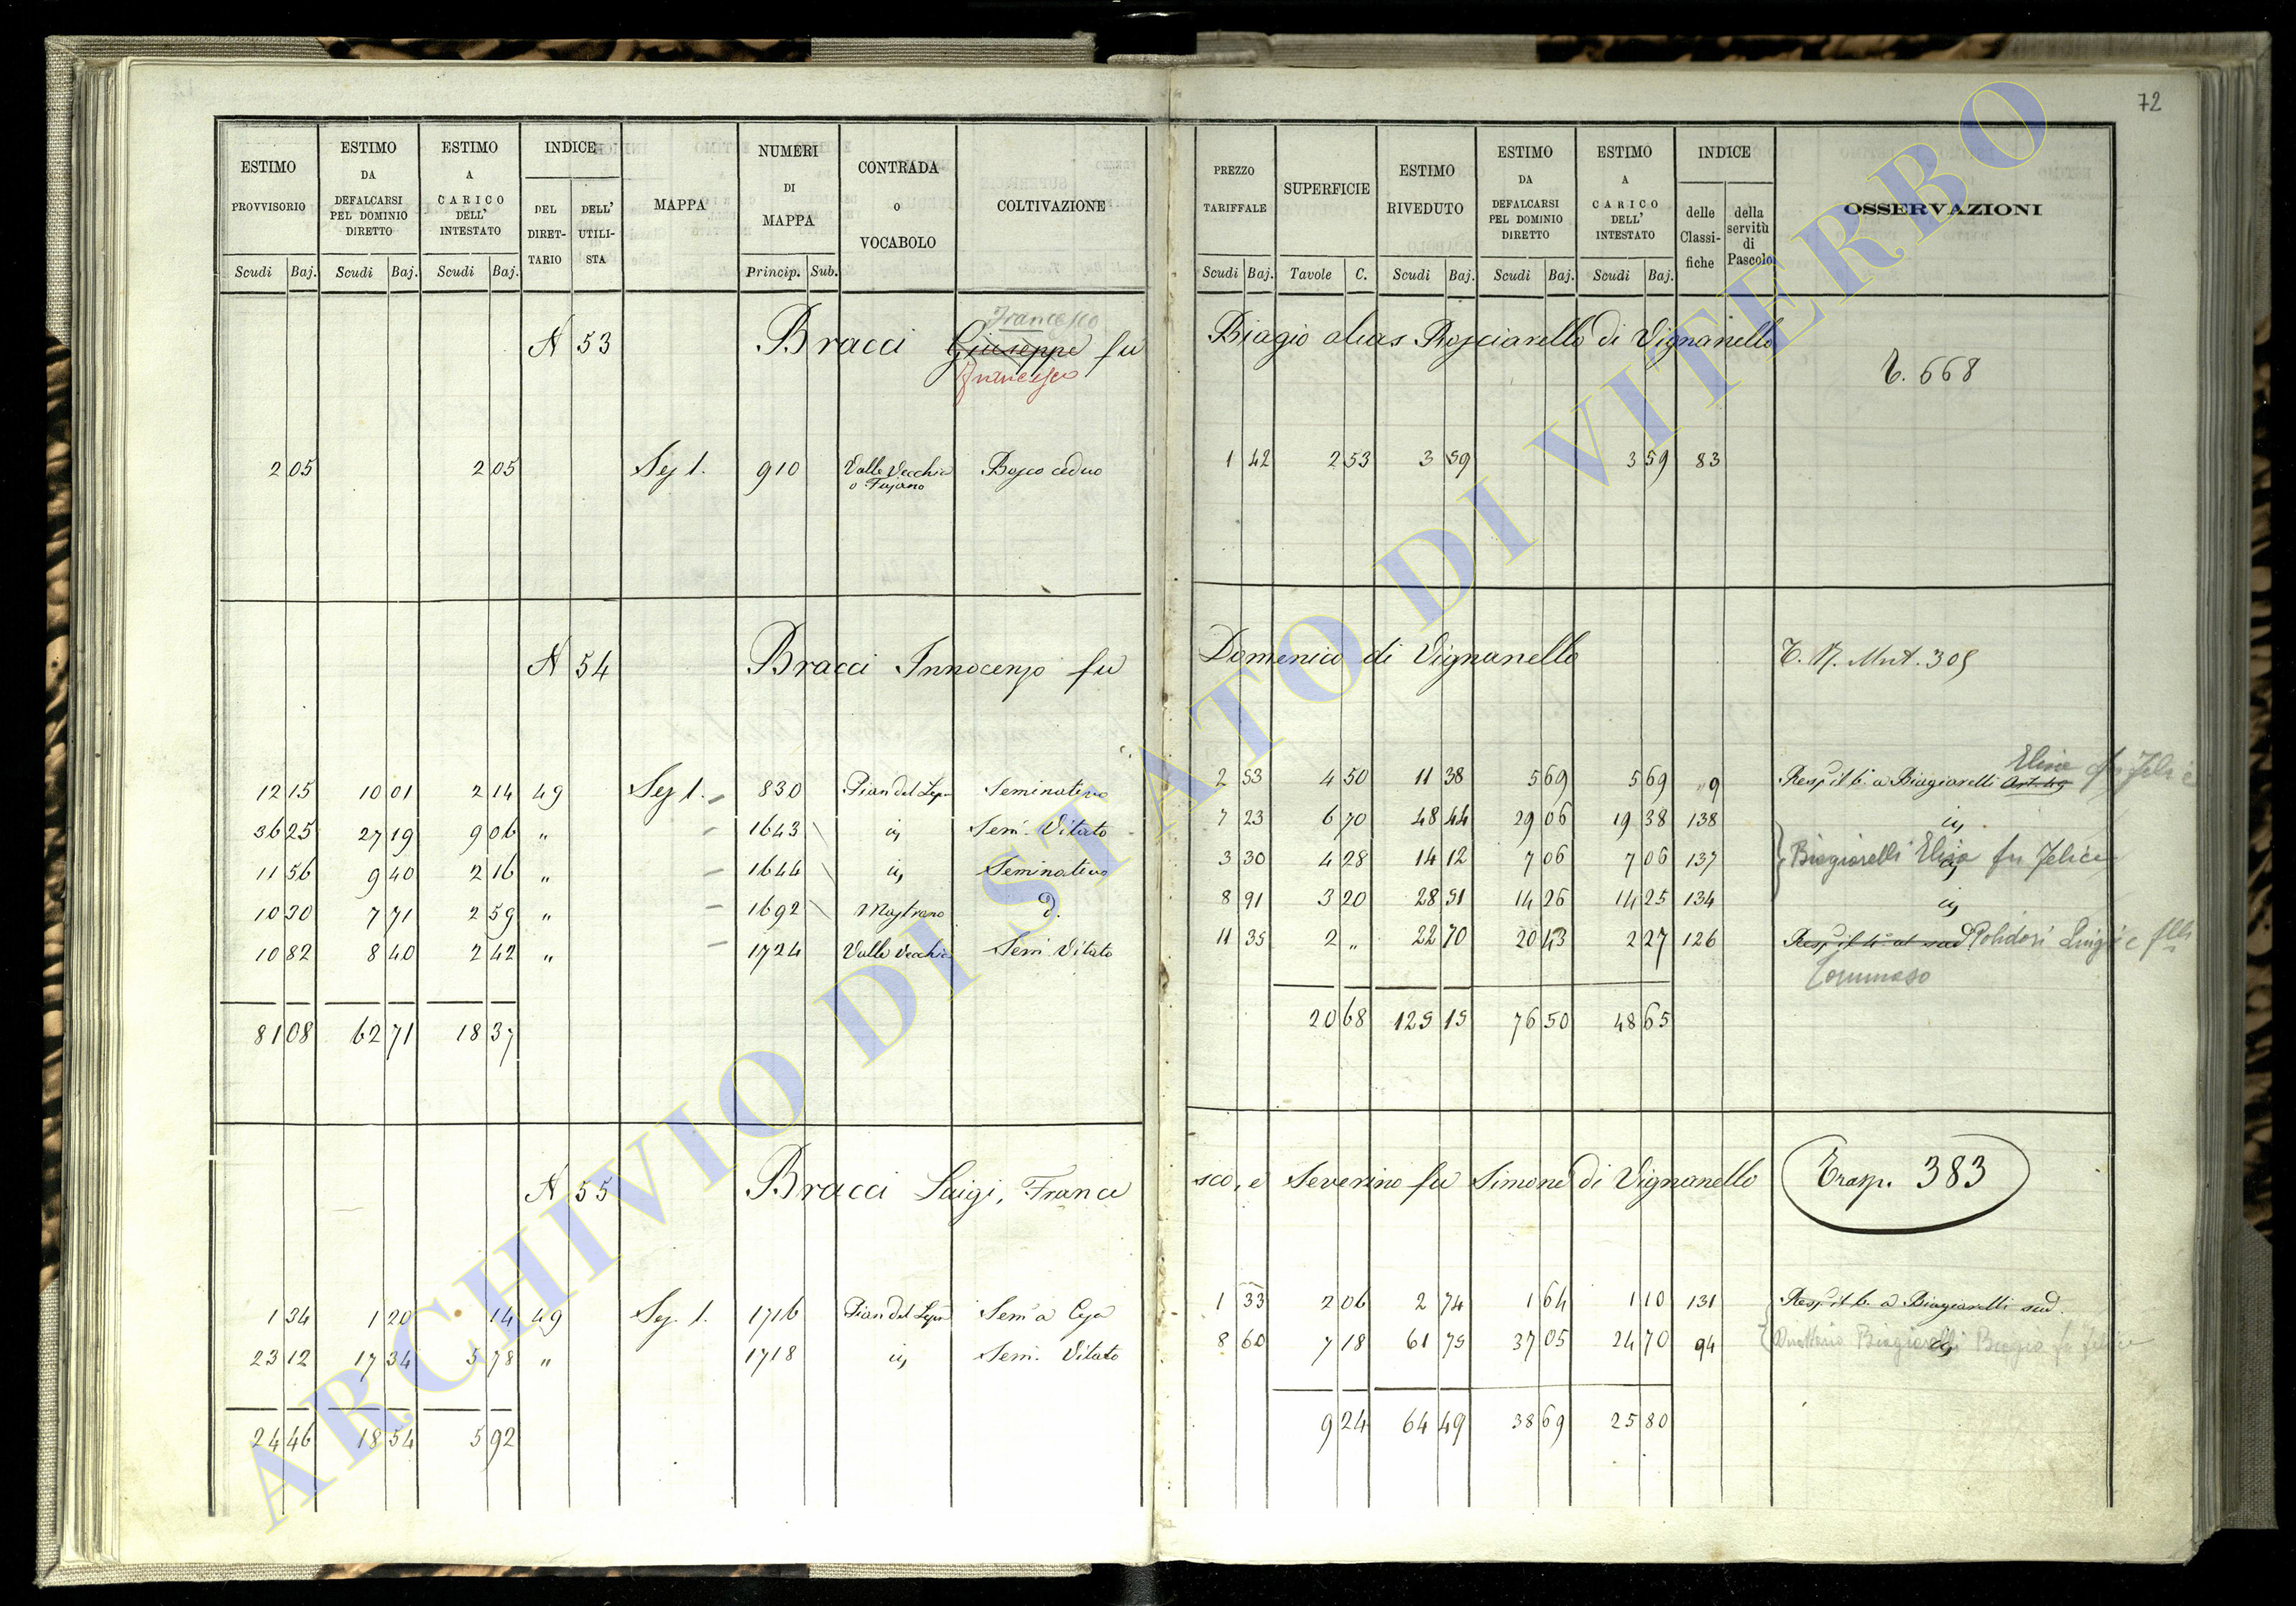 72
ESTIMO PROVVISORIO Scudi Baj.
ESTIMO DA DEFALCARSI PEL DOMINIO DIRETTO Scudi Baj.
ESTIMO A CARICO DELL' INTESTATO Scudi Baj.
INDICE DEL DIRET-TARIO DELL' UTILI-STA
MAPPA
NUMERI DI MAPPA Princip. Sub.
CONTRADA O VOCABOLO
COLTIVAZIONE
PREZZO TARIFFALE Scudi Baj.
SUPERFICIE Tavole C.
ESTIMO RIVEDUTO Scudi Baj.
ESTIMO DA DEFALCARSI PEL DOMINIO DIRETTO Scudi Baj.
ESTIMO A CARICO DELL' INTESTATO Scudi Baj.
INDICE delle Classi-fiche della servitù di Pascolo
OSSERVAZIONI
Francesco
N 53 Bracci Giuseppe fu Biagio alias Rosciarello di Vignanello
Francesco
T. 668
2 05 2 05 Sez 1. 910 Valle Vecchia o Fajano Bosco ceduo 1 42 2 53 3 59 3 59 83
N 54 Bracci Innocenzo fu Domenico di Vignanello T. N. Mut. 305
Elisa fu Felice
12 15 10 01 2 14 49 Sez 1. 830 Pian del Lepre Seminativo 2 53 4 50 11 38 5 69 5 69 9 Resp il b. a Biagiarelli Art. 49
36 25 27 19 9 06 " 1643 id Sem. Vitato 7 23 6 70 48 44 29 06 19 38 138 id
11 56 9 40 2 16 " 1644 id Seminativo 3 30 4 28 14 12 7 06 7 06 137 id Biagiarelli Elisa fu Felice
10 30 7 71 2 59 " 1692 Mastrano d. 8 91 3 20 28 51 14 26 14 25 134 id
10 82 8 40 2 42 " 1724 Valle Vecchia Sem. Vitato 11 35 2 " 22 70 20 43 2 27 126 Resp il b. al sud Polidori Luigi e flli
Tommaso
81 08 62 71 18 37 20 68 125 15 76 50 48 65
N 55 Bracci Luigi, Francesco, e Severino fu Simone di Vignanello Trasp. 383
1 34 1 20 14 49 Sez. 1. 1716 Pian del Lepre Sem. a Ceja 1 33 2 06 2 74 1 64 1 10 131 Resp il b. a Biagiarelli sud.
23 12 17 34 5 78 " 1718 id Sem. Vitato 8 60 7 18 61 75 37 05 24 70 94 id Direttario Biagiarelli Biagio fu Felice
24 46 18 54 5 92 9 24 64 49 38 69 25 80
ARCHIVIO DI STATO DI VITERBO